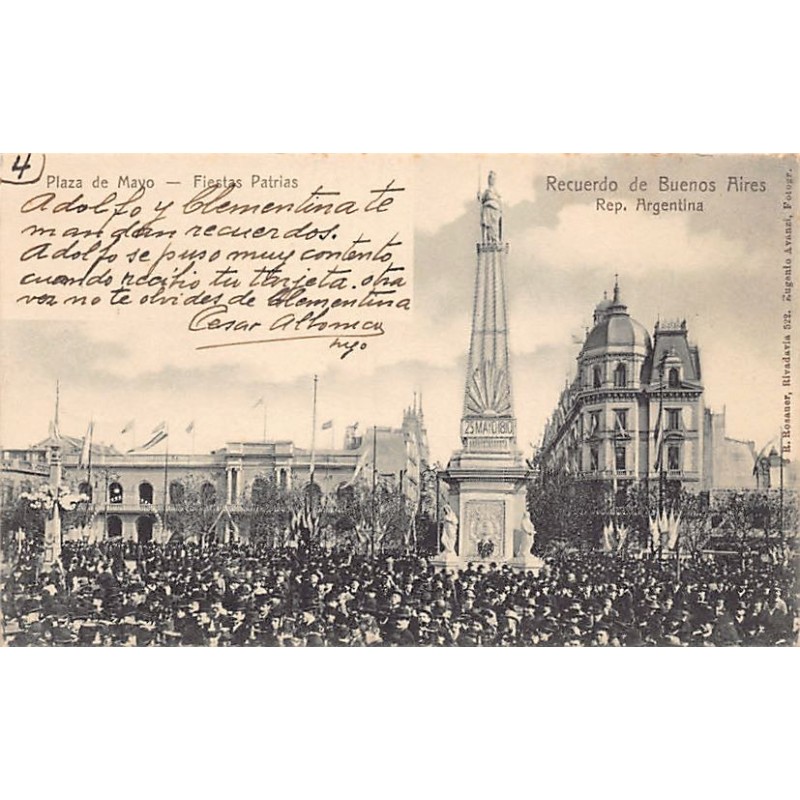 4
Plaza de Mayo — Fiestas Patrias
Recuerdo de Buenos Aires
Rep. Argentina
Adolfo y Clementina te
mandan recuerdos.
Adolfo se puso muy contento
cuando recibio tu tarjeta. otra
vez no te olvides de Clementina
Cesar
25 MAYO 1810
R. Rosauer, Rivadavia 522. Eugenio Avanzi, Fotogr.